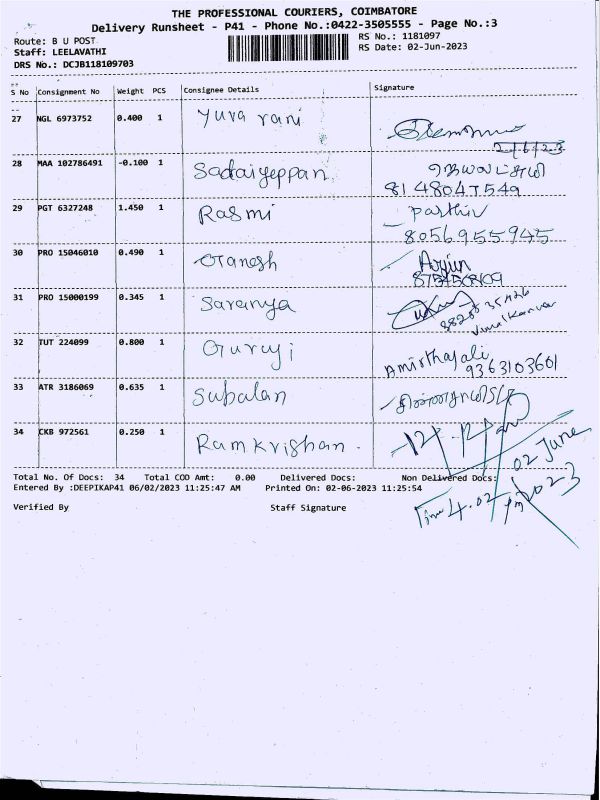 THE PROFESSIONAL COURIERS, COIMBATORE
Delivery Runsheet - P41 - Phone No.:0422-3505555 - Page No.:3
Route: B U POST
RS No.: 1181097
Staff: LEELAVATHI
RS Date: 02-Jun-2023
DRS No.: DCJB118109703
S No Consignment No Weight PCS Consignee Details Signature
27 NGL 6973752 0.400 1 Yuva rani
2/6/23
28 MAA 102786491 -0.100 1 Sadaiyeppan
8148047549
29 PGT 6327248 1.450 1 Rasmi Parthiv
8056955945
30 PRO 15046010 0.490 1 Ganesh Arjun
31 PRO 15000199 0.345 1 Saranya
Vimal Kannan
32 TUT 224099 0.800 1 Guruji Amirthajali
9363103601
33 ATR 3186069 0.635 1 Subalan
34 CKB 972561 0.250 1 Ramkrishan.
02 June
2023
Total No. Of Docs: 34 Total COD Amt: 0.00 Delivered Docs: Non Delivered Docs:
Entered By :DEEPIKAP41 06/02/2023 11:25:47 AM Printed On: 02-06-2023 11:25:54
Time 4.02 pm
Verified By Staff Signature